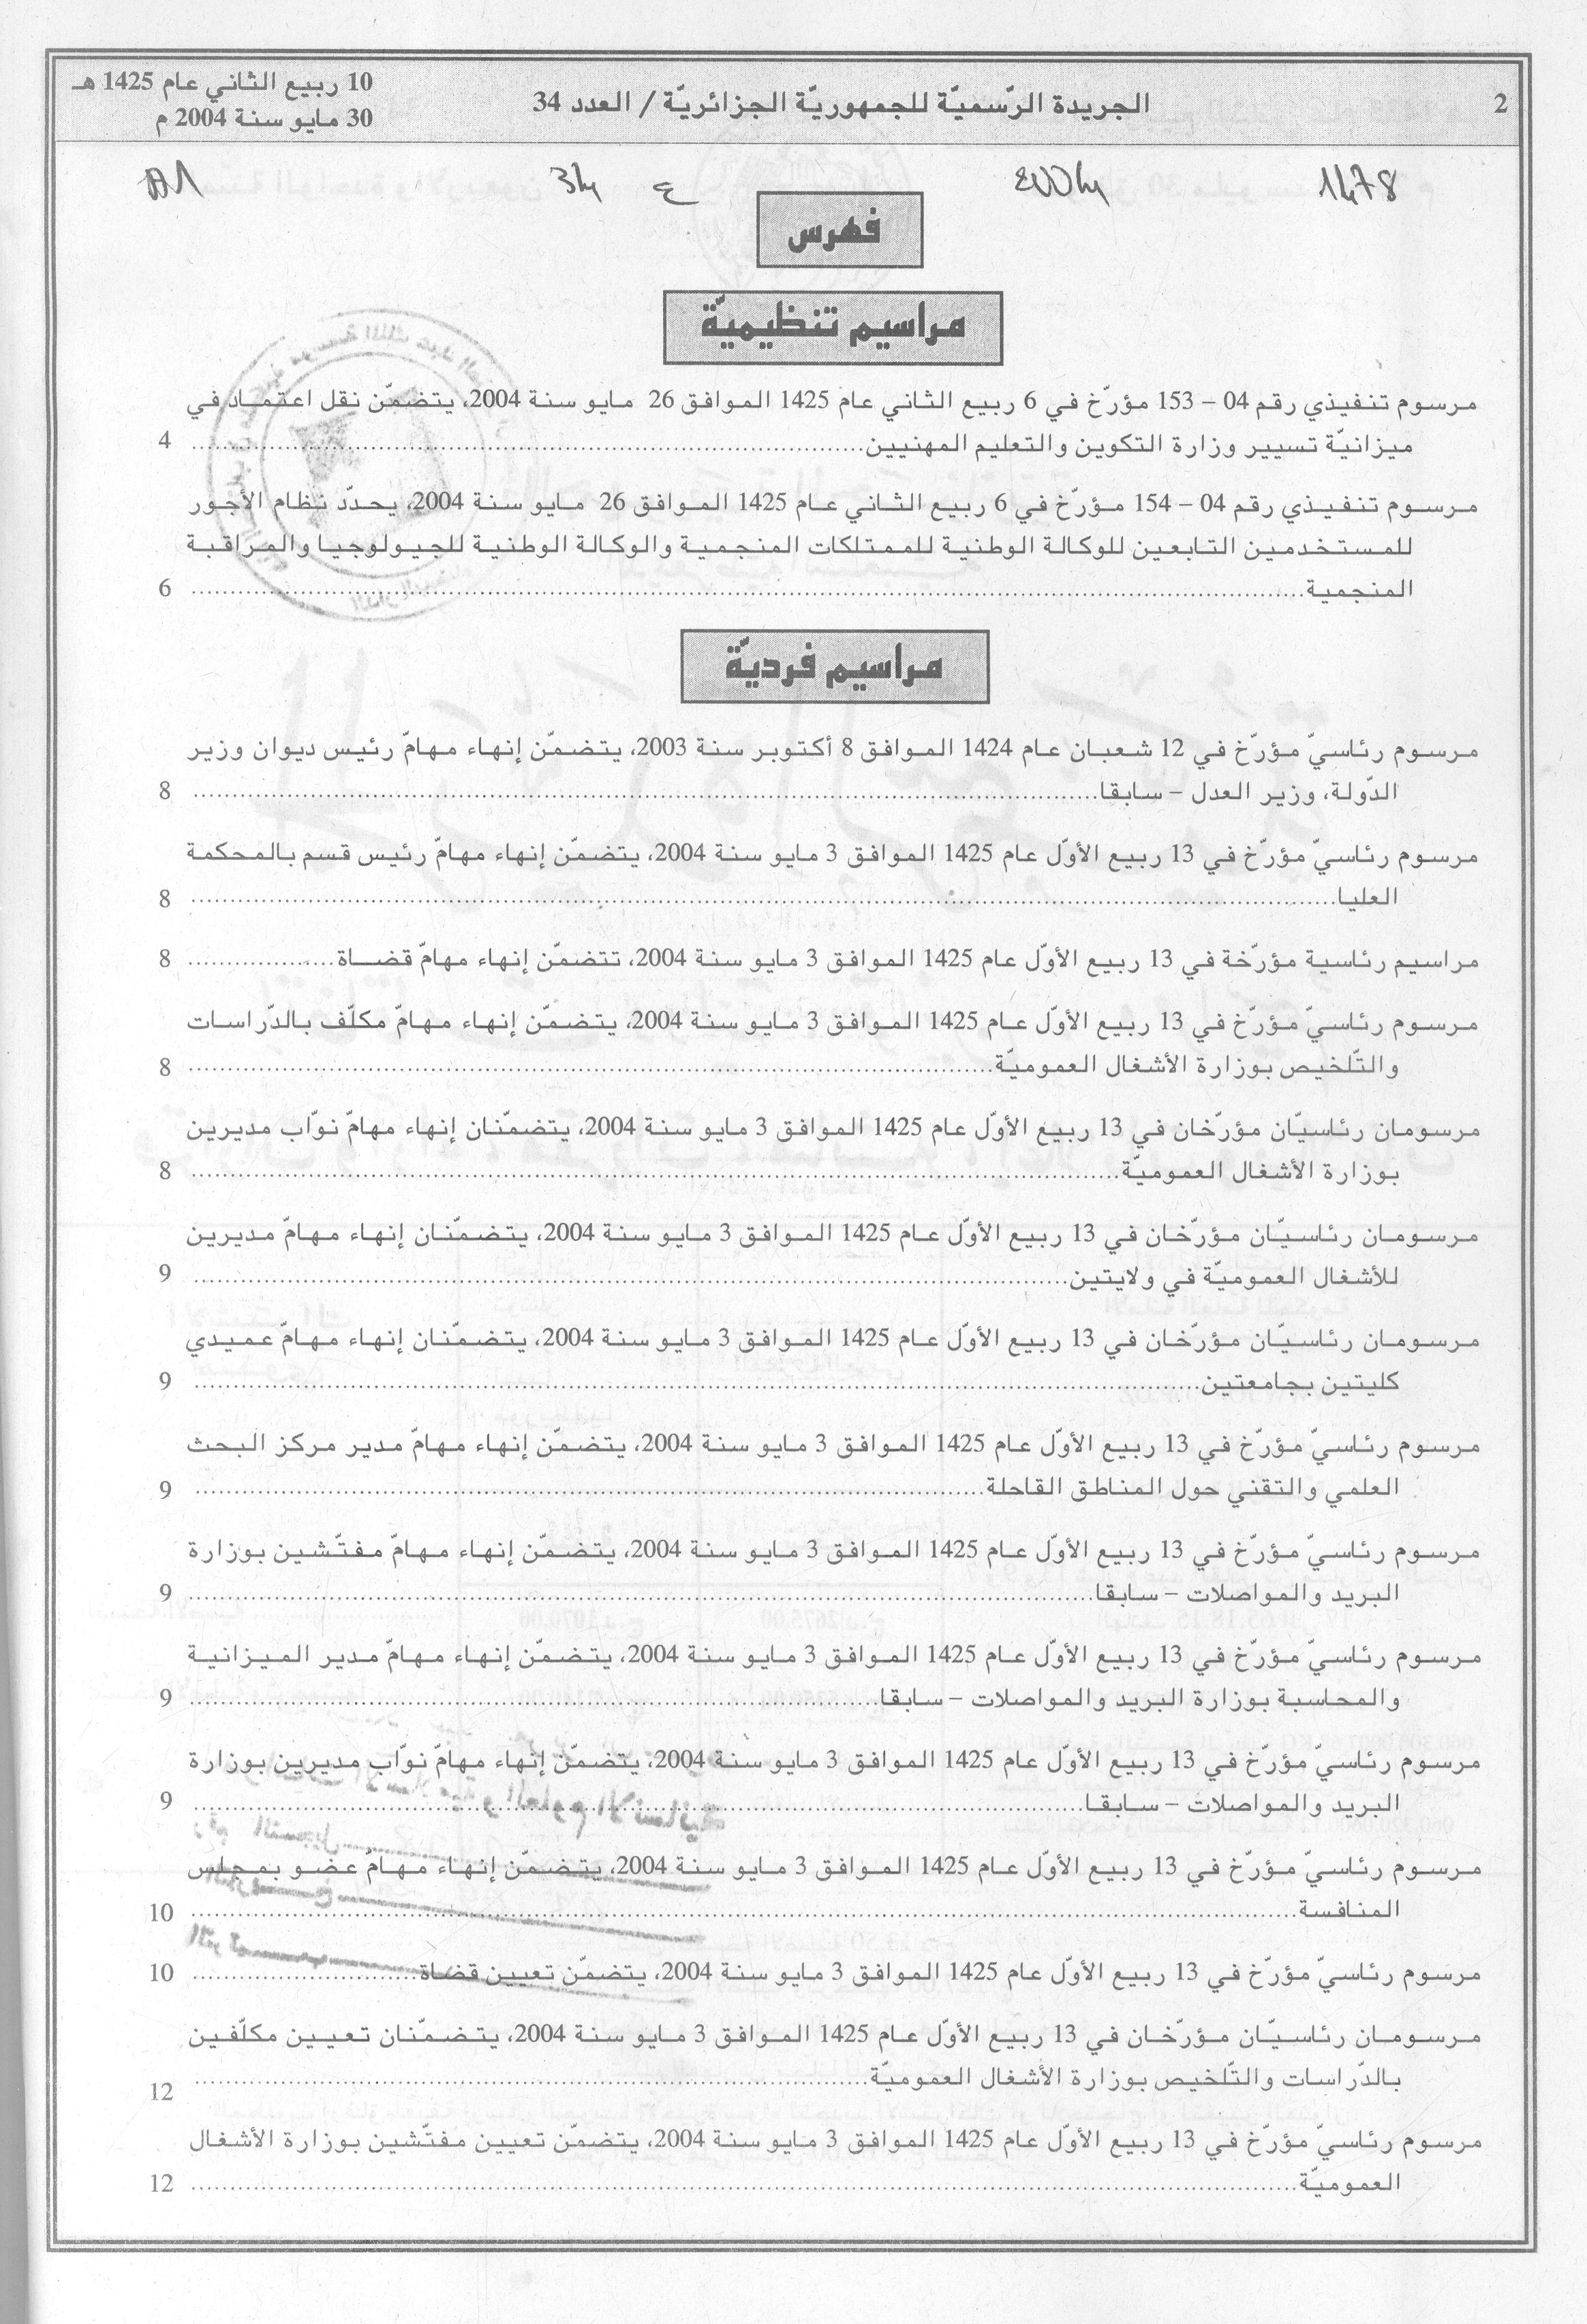 2
الجريدة الرّسميّة للجمهوريّة الجزائريّة / العدد 34
10 ربيع الثاني عام 1425 هـ
30 مايو سنة 2004 م
1478
34 ع
فهرس
مراسيم تنظيميّة
مرسوم تنفيذي رقم 04 – 153 مؤرّخ في 6 ربيع الثاني عام 1425 الموافق 26 مايو سنة 2004، يتضمّن نقل اعتمـاد في
ميزانيّة تسيير وزارة التكوين والتعليم المهنيين........................ 4
مرسوم تنفيذي رقم 04 – 154 مؤرّخ في 6 ربيع الثاني عام 1425 الموافق 26 مايو سنة 2004، يحدّد نظام الأجور
للمستخدمين التابعين للوكالة الوطنية للممتلكات المنجمية والوكالة الوطنية للجيولوجيا والمراقبة
المنجمية........................ 6
مراسيم فرديّة
مرسوم رئاسيّ مؤرّخ في 12 شعبان عام 1424 الموافق 8 أكتوبر سنة 2003، يتضمّن إنهاء مهامّ رئيس ديوان وزير
الدّولة، وزير العدل – سابقا........................ 8
مرسوم رئاسيّ مؤرّخ في 13 ربيع الأوّل عام 1425 الموافق 3 مايو سنة 2004، يتضمّن إنهاء مهامّ رئيس قسم بالمحكمة
العليا........................ 8
مراسيم رئاسية مؤرّخة في 13 ربيع الأوّل عام 1425 الموافق 3 مايو سنة 2004، تتضمّن إنهاء مهامّ قضـاة........................ 8
مرسوم رئاسيّ مؤرّخ في 13 ربيع الأوّل عام 1425 الموافق 3 مايو سنة 2004، يتضمّن إنهاء مهامّ مكلّف بالدّراسات
والتّلخيص بوزارة الأشغال العموميّة........................ 8
مرسومان رئاسيّان مؤرّخان في 13 ربيع الأوّل عام 1425 الموافق 3 مايو سنة 2004، يتضمّنان إنهاء مهامّ نوّاب مديرين
بوزارة الأشغال العموميّة........................ 8
مرسومان رئاسيّان مؤرّخان في 13 ربيع الأوّل عام 1425 الموافق 3 مايو سنة 2004، يتضمّنان إنهاء مهامّ مديرين
للأشغال العموميّة في ولايتين........................ 9
مرسومان رئاسيّان مؤرّخان في 13 ربيع الأوّل عام 1425 الموافق 3 مايو سنة 2004، يتضمّنان إنهاء مهامّ عميدي
كليتين بجامعتين........................ 9
مرسوم رئاسيّ مؤرّخ في 13 ربيع الأوّل عام 1425 الموافق 3 مايو سنة 2004، يتضمّن إنهاء مهامّ مدير مركز البحث
العلمي والتقني حول المناطق القاحلة........................ 9
مرسوم رئاسيّ مؤرّخ في 13 ربيع الأوّل عام 1425 الموافق 3 مايو سنة 2004، يتضمّن إنهاء مهامّ مفتّشين بوزارة
البريد والمواصلات – سابقا........................ 9
مرسوم رئاسيّ مؤرّخ في 13 ربيع الأوّل عام 1425 الموافق 3 مايو سنة 2004، يتضمّن إنهاء مهامّ مدير الميزانية
والمحاسبة بوزارة البريد والمواصلات – سابقا........................ 9
مرسوم رئاسيّ مؤرّخ في 13 ربيع الأوّل عام 1425 الموافق 3 مايو سنة 2004، يتضمّن إنهاء مهامّ نوّاب مديرين بوزارة
البريد والمواصلات – سابقا........................ 9
مرسوم رئاسيّ مؤرّخ في 13 ربيع الأوّل عام 1425 الموافق 3 مايو سنة 2004، يتضمّن إنهاء مهامّ عضو بمجلس
المنافسة........................ 10
مرسوم رئاسيّ مؤرّخ في 13 ربيع الأوّل عام 1425 الموافق 3 مايو سنة 2004، يتضمّن تعيين قضاة........................ 10
مرسومان رئاسيّان مؤرّخان في 13 ربيع الأوّل عام 1425 الموافق 3 مايو سنة 2004، يتضمّنان تعيين مكلّفين
بالدّراسات والتّلخيص بوزارة الأشغال العموميّة........................ 12
مرسوم رئاسيّ مؤرّخ في 13 ربيع الأوّل عام 1425 الموافق 3 مايو سنة 2004، يتضمّن تعيين مفتّشين بوزارة الأشغال
العموميّة........................ 12